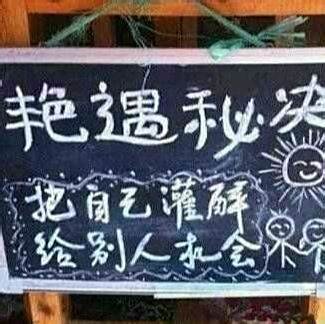 艳遇秘决
把自己灌醉
给别人机会